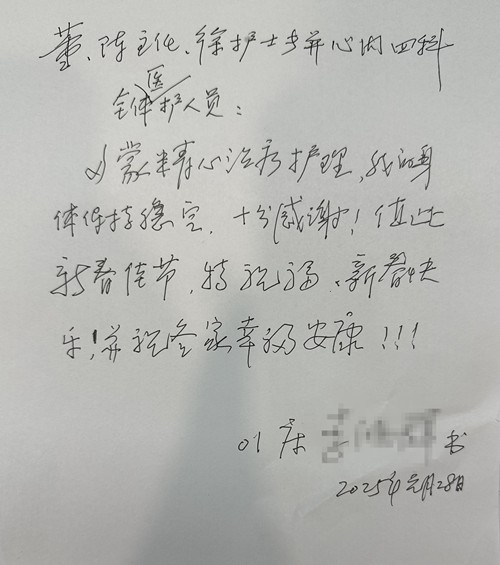 董、陈主任、徐护士长并心内四科
全体医护人员：
　　蒙精心治疗护理，我的身
体保持稳定，十分感谢！值此
新春佳节，特祝福、新春快
乐！并祝全家幸福安康！！！
01床 书
2025年元月28日